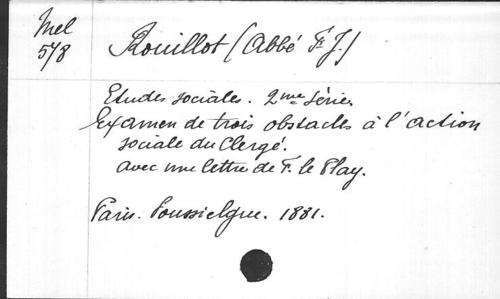 Mel
5/8
Rouillot (Abbé F. J.)
Etudes sociales. 2me Série.
Examen de trois obstacles à l'action
sociale du Clergé.
avec une lettre de F. le Play.
Paris. Poussielgue. 1881.